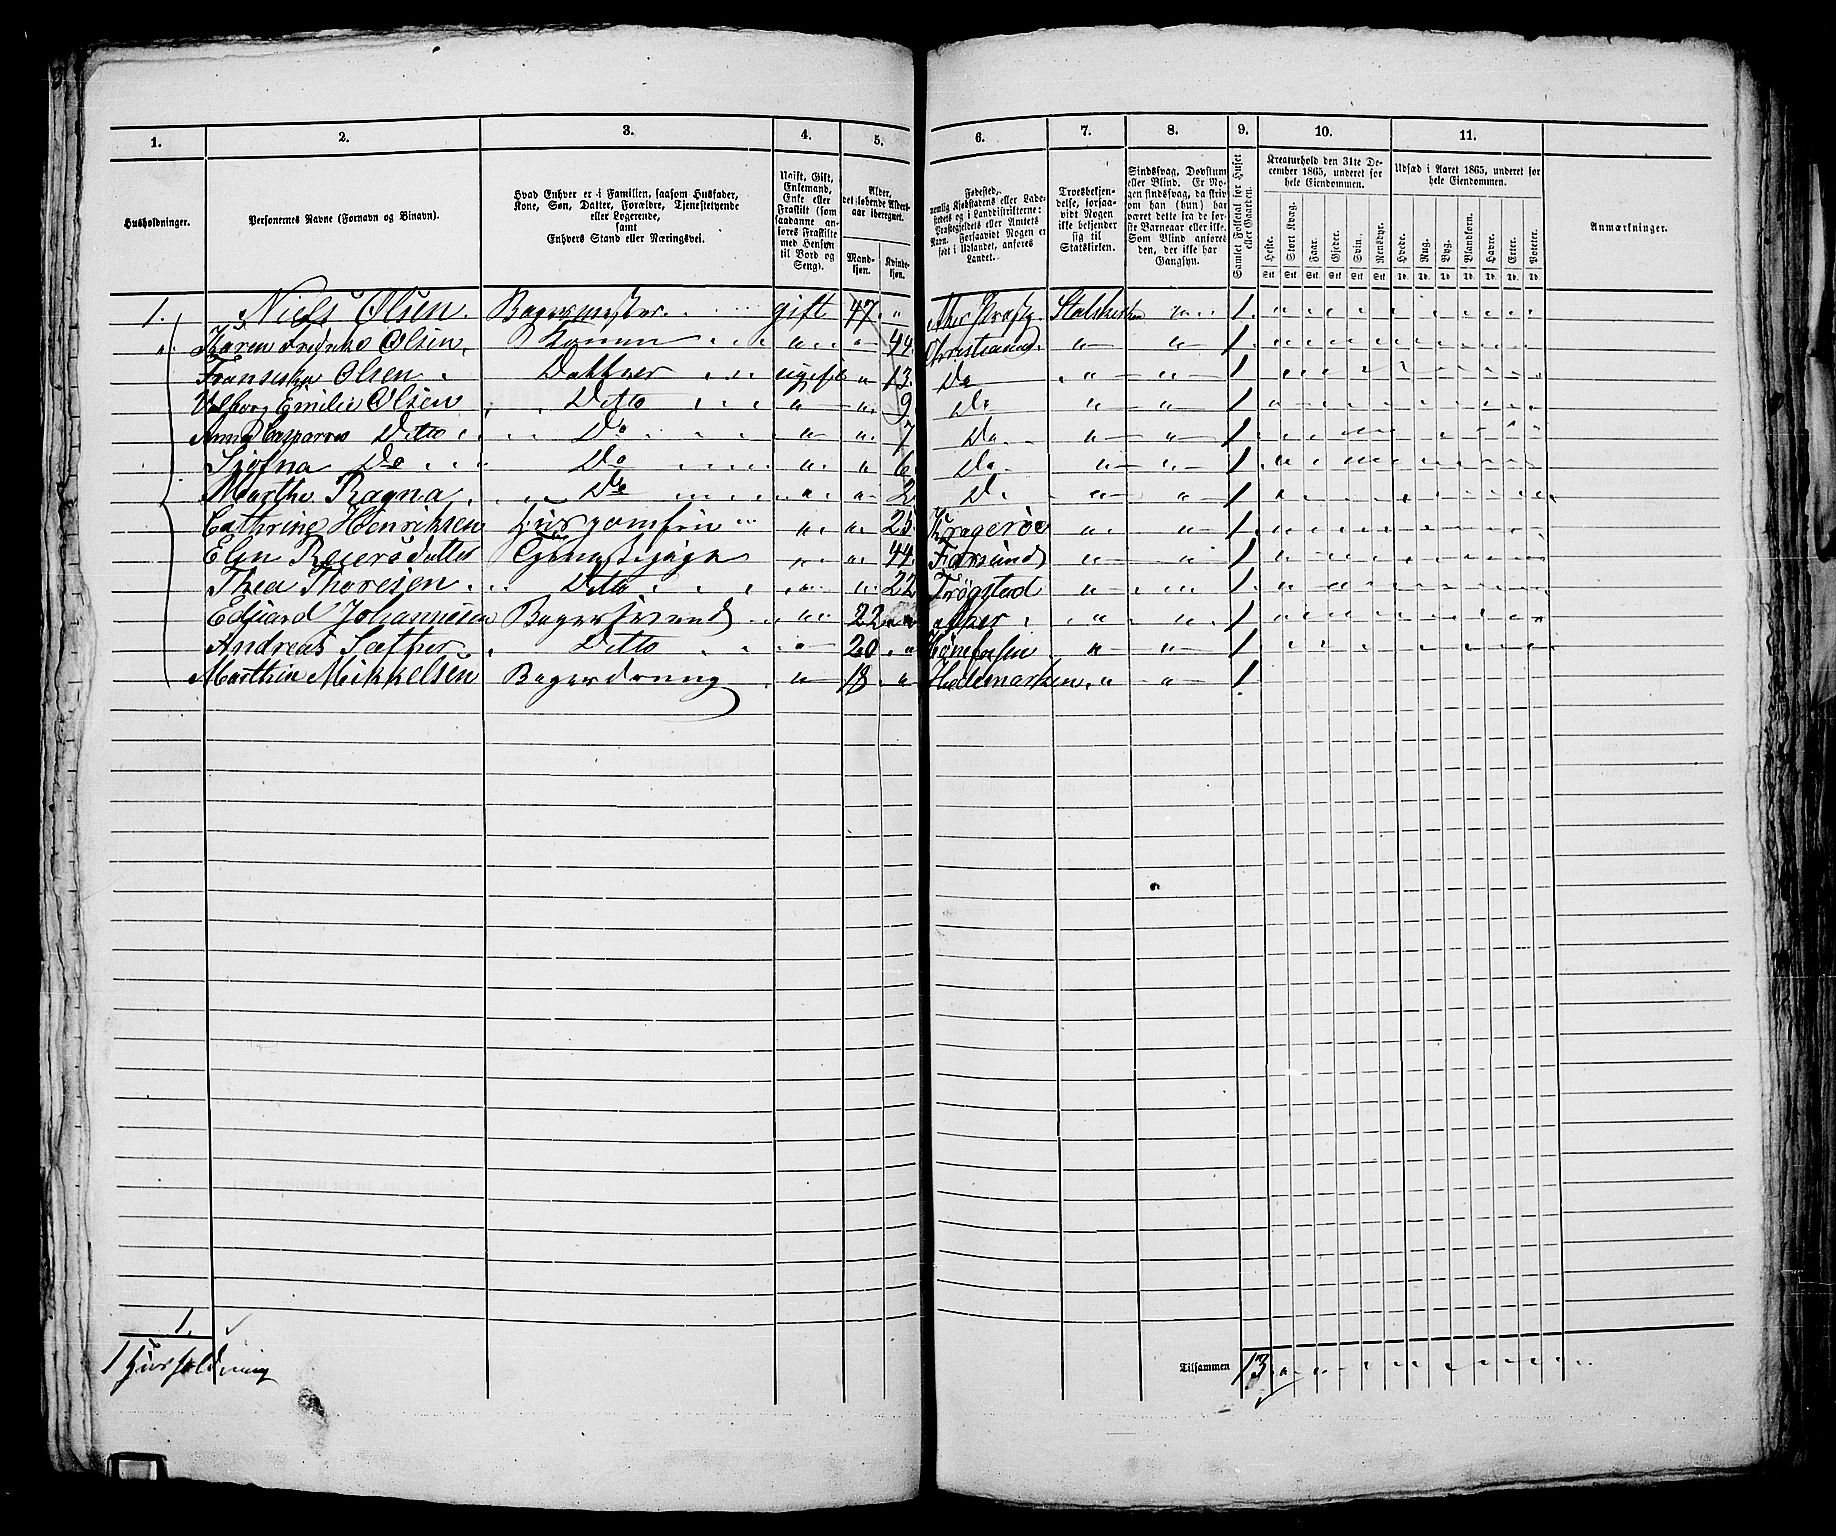 1. 2. 3. 4. 5. 6. 7. 8. 9. 10. 11.
Husholdninger.
Personernes Navne (Fornavn og Binavn).
Hvad Enhver er i Familien, saasom Husfader, Kone, Søn, Datter, Forældre, Tjenestetyende eller Logerende, samt Enhvers Stand eller Næringsvei.
Ugift, Gift, Enkemand, Enke eller Fraskilt (som saadanne anføres Fraskilte med Hensyn til Bord og Seng).
Alder, det løbende Alders-aar iberegnet.
Mand-kjøn. Kvinde-kjøn.
Fødested, nemlig Kjøbstadens eller Ladestedets og i Landdistrikterne: Præstegjeldets eller Amtets Navn. Forsaavidt Nogen er født i Udlandet, anføres Landet.
Troesbekjendelse, forsaavidt Nogen ikke bekjender sig til Statskirken.
Sindssvag, Døvstum eller Blind. Er Nogen sindssvag, da skrives om han (hun) har været dette fra de første Barneaar eller ikke. Som Blind anføres den, der ikke har Gangsyn.
Samlet Folketal for Huset eller Gaarden.
Kreaturhold den 31te December 1865, underet for hele Eiendommen.
Heste. Stort Kvæg. Faar. Gjeder. Svin. Rensdyr.
Udsæd i Aaret 1865, underet for hele Eiendommen.
Hvede. Rug. Byg. Blandkorn. Havre. Erter. Poteter.
Anmærkninger.
1. Niels Olsen. Bagermester gift 47 " Aker Præstg. Statskirken " 1
" Karen Olsen. Konen " " 44 Christiania " " 1
Fransiska Olsen Datter ugift " 13. Do " " 1
Valborg Emilie Olsen Ditto " " 9 Do " " 1
Anna Ditto Do " " 7 Do " " 1
Sjofna Do Do " " 6 Do " " 1
Marthe Ragna Do " " 2 Do " " 1
Cathrine Henriksen Husjomfru " " 25 Kragerøe " " 1
Elen Reiersdatter Tjenestepige " " 44 Farsund " " 1
Thea Thoresen Ditto " " 22 Trøgstad " " 1
Edvard Johannesen Bagersvend " 22 " Aker " " 1
Andreas Sæther Ditto " 20 " Hønefossen " " 1
Marthin Mikkelsen Bagerdreng " 18 " Hedemarken " " 1
1.
1 Husholdning
Tilsammen 13